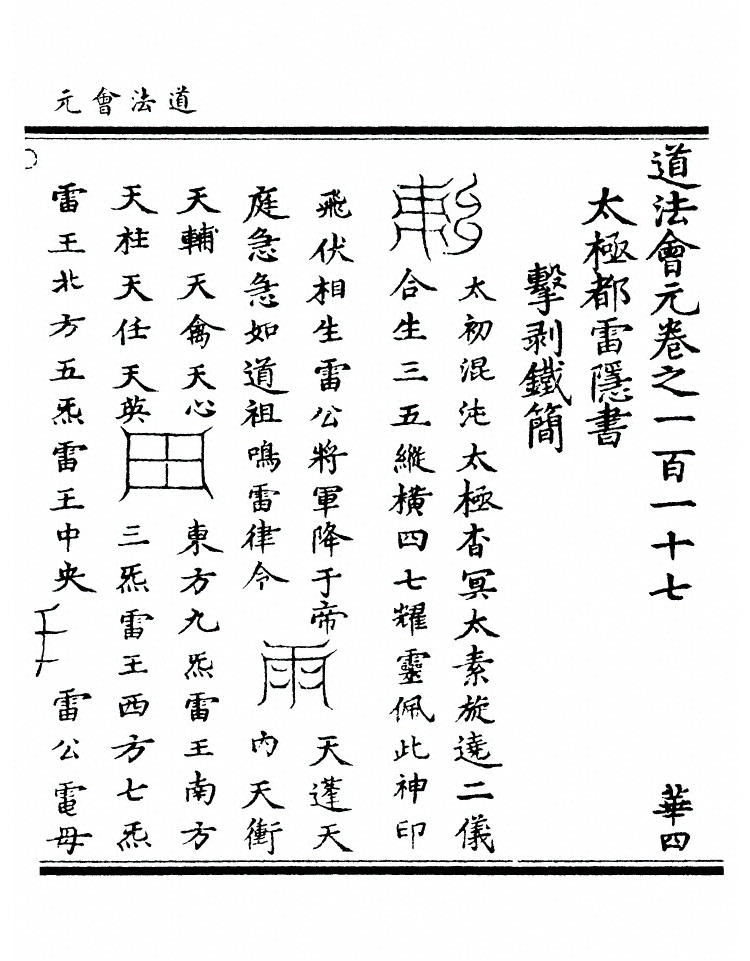 道法會元
道法會元卷之一百一十七 華四
太極都雷隱書
擊剥鐵簡
太初混沌太極杳冥太素旋遶二儀
合生三五縱橫四七耀靈佩此神印
飛伏相生雷公將軍降于帝 天蓬天
庭急急如道祖鳴雷律令 内天衝
天輔天禽天心 東方九炁雷王南方
天柱天任天英 三炁雷王西方七炁
雷王北方五炁雷王中央 雷公電母